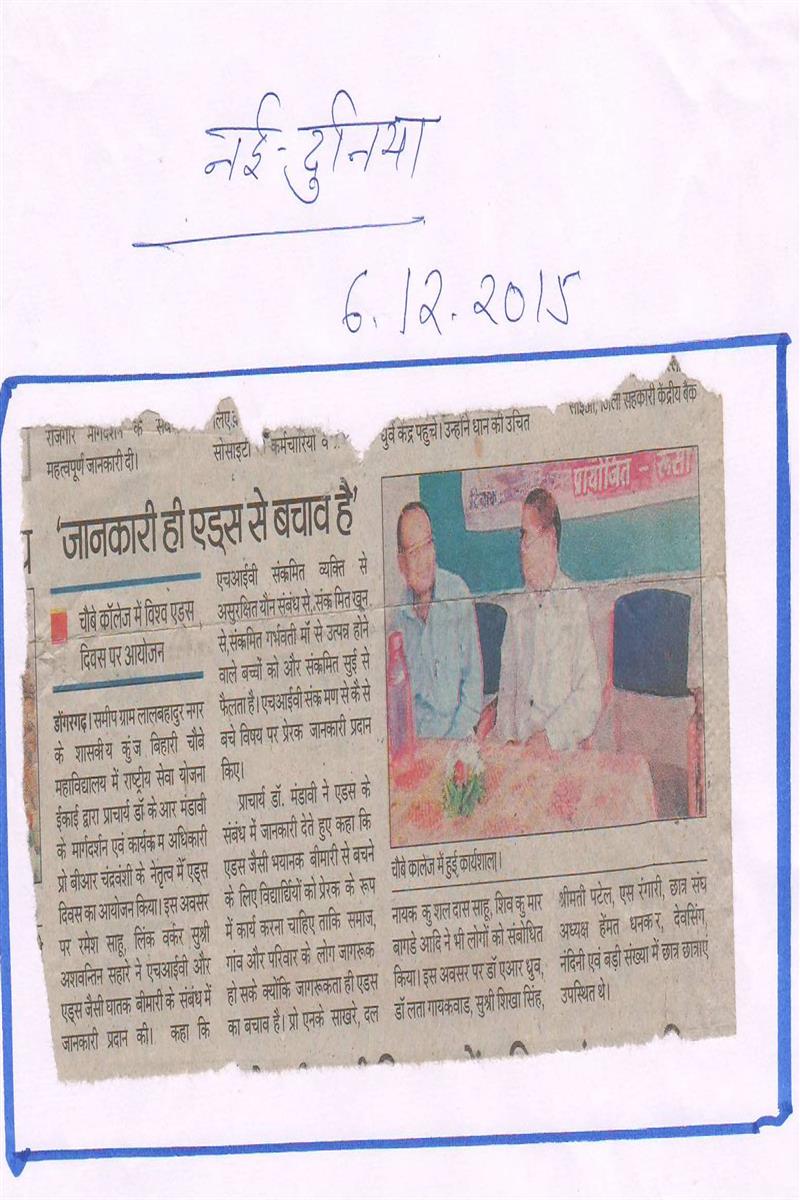 नई-दुनिया
6.12.2015
महत्वपूर्ण जानकारी दी।
सोसाइटी कर्मचारियों व
धुर्वे केंद्र पहुचे। उन्होंने धान की उचित
जिला सहकारी केंद्रीय बैंक
'जानकारी ही एड्स से बचाव है'
चौबे कॉलेज में विश्व एड्स
दिवस पर आयोजन
डोंगरगढ़। समीप ग्राम लालबहादुर नगर
के शासकीय कुंज बिहारी चौबे
महाविद्यालय में राष्ट्रीय सेवा योजना
ईकाई द्वारा प्राचार्य डॉ के आर मंडावी
के मार्गदर्शन एवं कार्यक्रम अधिकारी
प्रो बीआर चंद्रवंशी के नेतृत्व में एड्स
दिवस का आयोजन किया। इस अवसर
पर रमेश साहू, लिंक वर्कर सुश्री
अशवन्तिन सहारे ने एचआईवी और
एड्स जैसी घातक बीमारी के संबंध में
जानकारी प्रदान की। कहा कि
एचआईवी संक्रमित व्यक्ति से
असुरक्षित यौन संबंध से, संक्रमित खून
से, संक्रमित गर्भवती मॉ से उत्पन्न होने
वाले बच्चों को और संक्रमित सुई से
फैलता है। एचआईवी संक्रमण से कैसे
बचे विषय पर प्रेरक जानकारी प्रदान
किए।
प्राचार्य डॉ. मंडावी ने एडस के
संबंध में जानकारी देते हुए कहा कि
एडस जैसी भयानक बीमारी से बचने
के लिए विद्यार्थियों को प्रेरक के रूप
में कार्य करना चाहिए ताकि समाज,
गांव और परिवार के लोग जागरूक
हो सके क्योंकि जागरूकता ही एडस
का बचाव है। प्रो एनके साखरे, दल
प्रायोजित - रूसा
चौबे कालेज में हुई कार्यशाला।
नायक कुशल दास साहू, शिव कुमार
बागडे आदि ने भी लोगों को संबोधित
किया। इस अवसर पर डॉ एआर ध्रुव,
डॉ लता गायकवाड, सुश्री शिखा सिंह,
श्रीमती पटेल, एस रंगारी, छात्र संघ
अध्यक्ष हेंमत धनकर, देवसिंग,
नंदिनी एवं बड़ी संख्या में छात्र छात्राएं
उपस्थित थे।